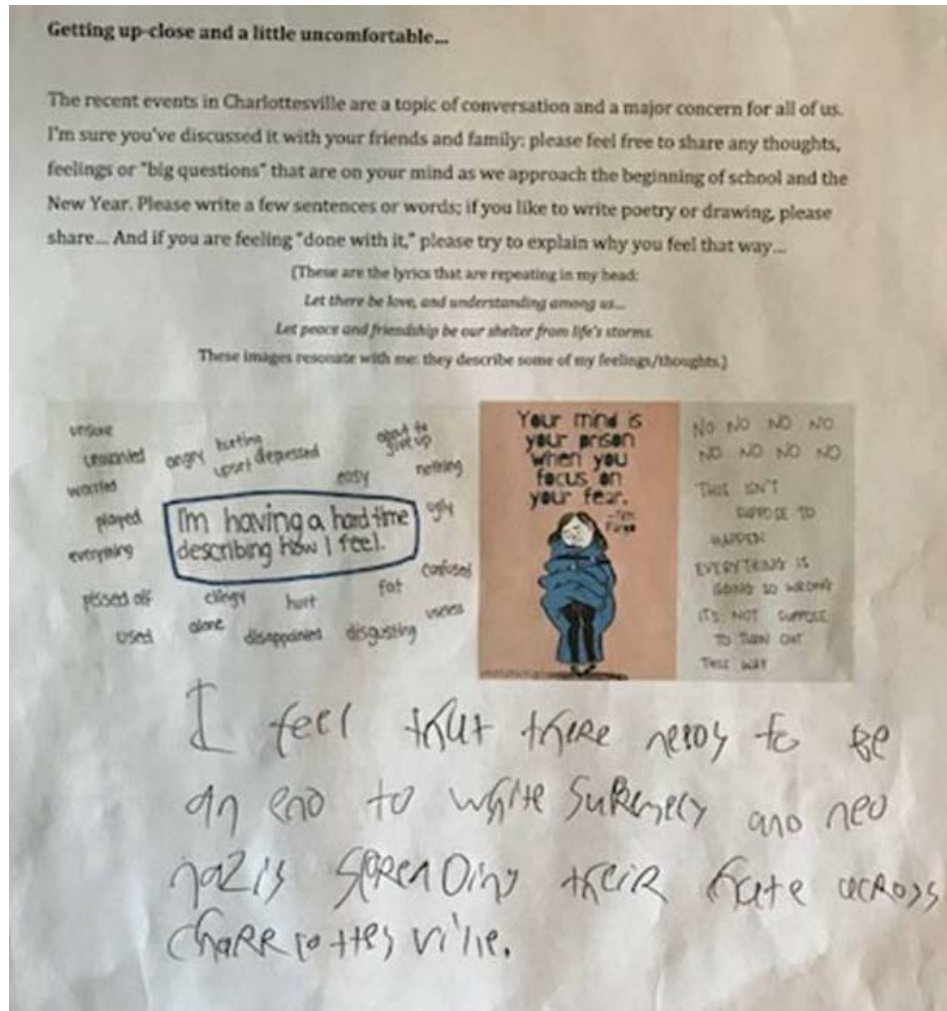 Getting up-close and a little uncomfortable...
The recent events in Charlottesville are a topic of conversation and a major concern for all of us.
I'm sure you've discussed it with your friends and family; please feel free to share any thoughts,
feelings or "big questions" that are on your mind as we approach the beginning of school and the
New Year. Please write a few sentences or words; if you like to write poetry or drawing, please
share... And if you are feeling "done with it," please try to explain why you feel that way...
(These are the lyrics that are repeating in my head:
Let there be love, and understanding among us...
Let peace and friendship be our shelter from life's storms.
These images resonate with me: they describe some of my feelings/thoughts.)
unsure
angry hurting
upset depressed
about to
give up
worried
easy nothing
played
I'm having a hard time
describing how I feel.
ugly
everything
confused
pissed off clingy hurt fat
used alone disappointed disgusting useless
Your mind is
your prison
when you
focus on
your fear.
NO NO NO NO
NO NO NO NO
THIS ISN'T
SUPPOSE TO
HAPPEN
EVERYTHING IS
GOING SO WRONG
IT'S NOT SUPPOSE
TO TURN OUT
THIS WAY
I feel that there needs to be
an end to white
and neo
nazis spreading their hate across